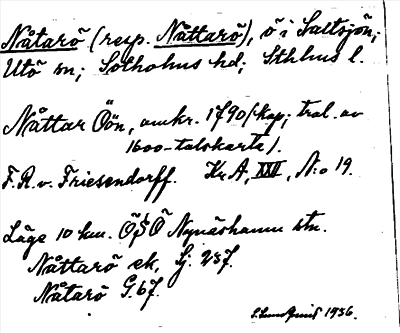 Nåtarö (resp. Nåttarö), ö i Saltsjön;
Utö sn; Sotholms hd; Sthlms l.
Nåttar Öön, omkr. 1790 (kop; trol. av
1600-talskarta).
F.R. v. Friesendorff. Kr A, XXII, N:o 19.
Läge 10 km. ÖSÖ Nynäshamn stn.
Nåttarö ek, Gj. 237.
Nåtarö G. 67.
S. Lundquist 1936.